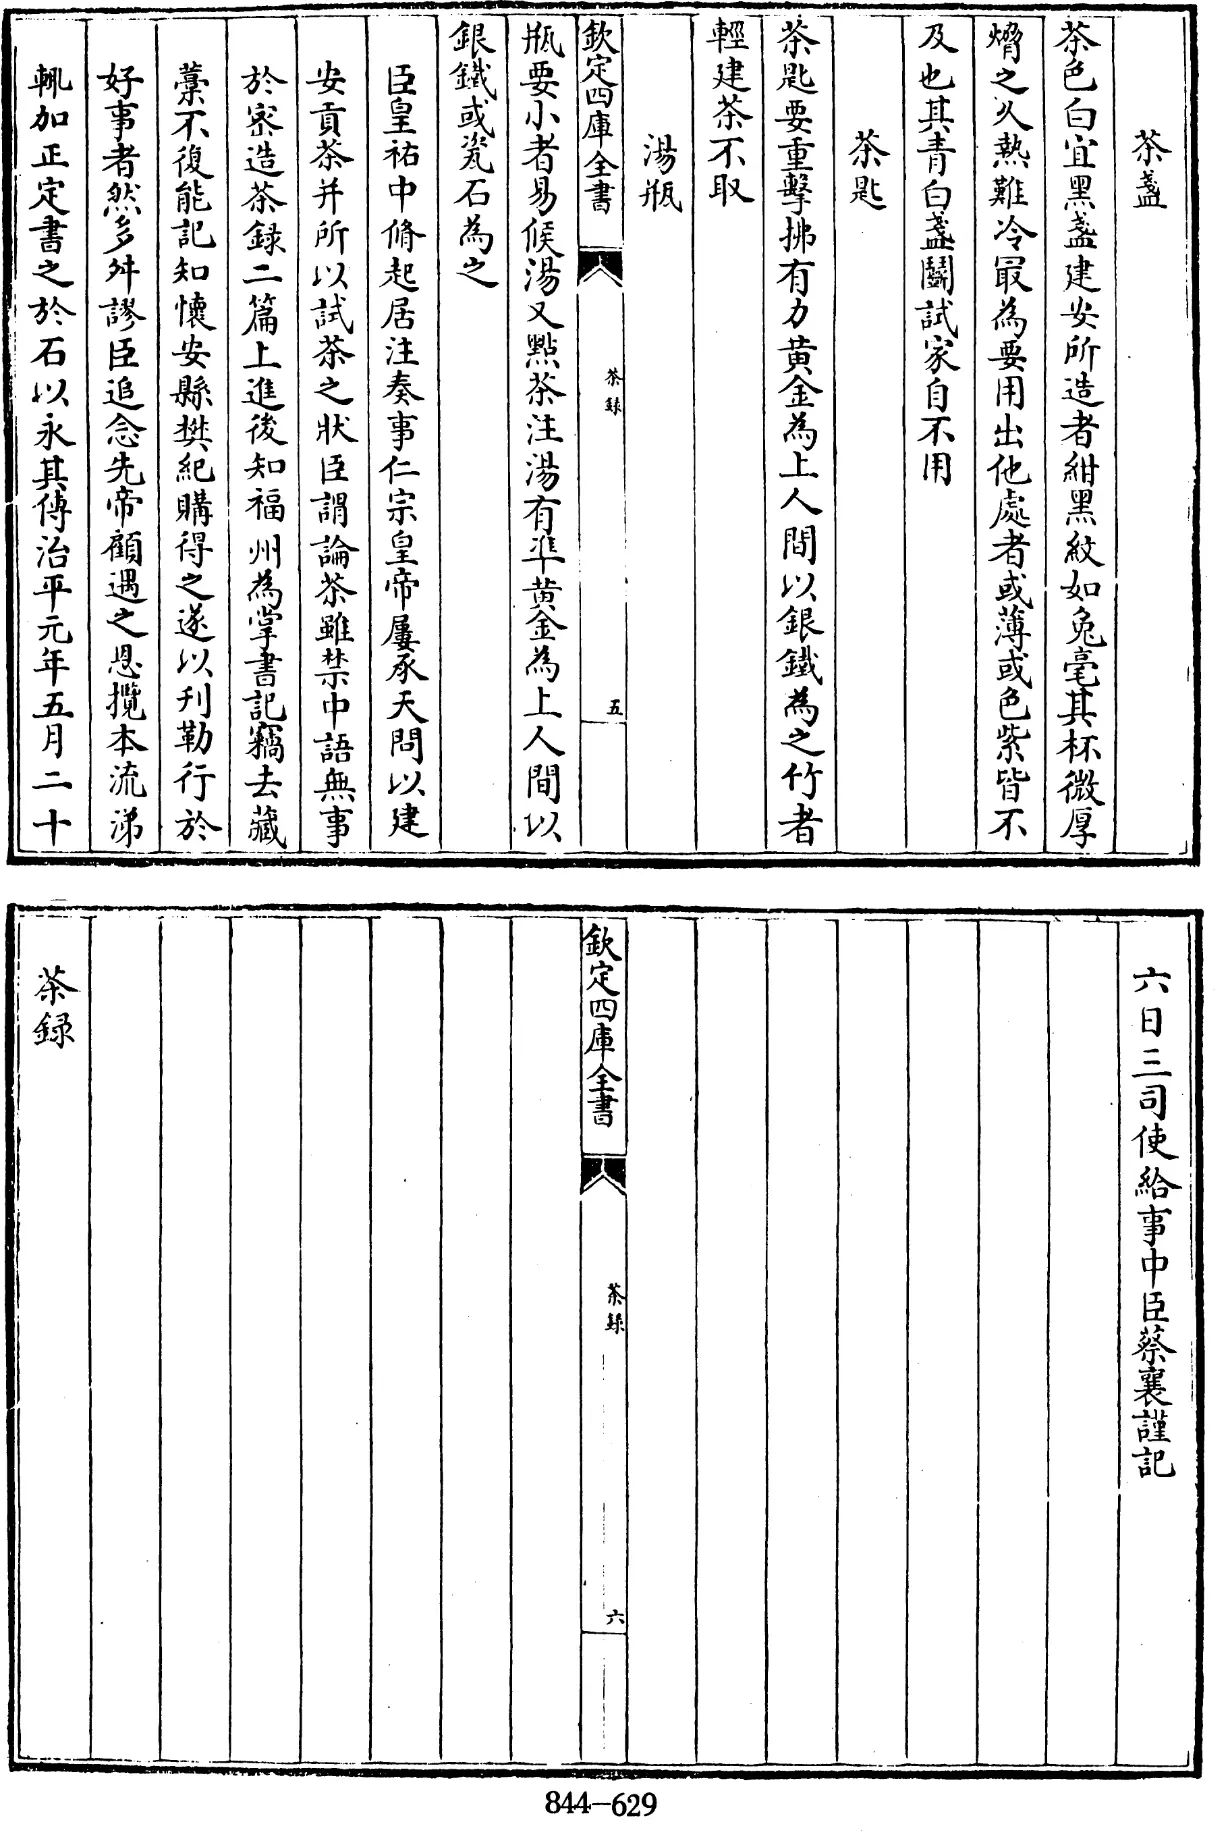 茶盞
茶色白宜黑盞建安所造者紺黑紋如兔毫其杯微厚
熁之乆熱難冷最為要用出他處者或薄或色紫皆不
及也其青白盞鬭試家自不用
茶匙
茶匙要重擊拂有力黄金為上人間以銀鐵為之竹者
輕建茶不取
湯瓶
欽定四庫全書
茶録
五
瓶要小者易候湯又㸃茶注湯有凖黄金為上人間以
銀鐵或瓷石為之
臣皇祐中脩起居注奏事仁宗皇帝屢承天問以建
安貢茶并所以試茶之狀臣謂論茶雖禁中語無事
於密造茶録二篇上進後知福州為掌書記竊去藏
藁不復能記知懐安縣樊紀購得之遂以刋勒行於
好事者然多舛謬臣追念先帝顧遇之恩攬本流涕
輒加正定書之於石以永其傳治平元年五月二十
六日三司使給事中臣蔡襄謹記
欽定四庫全書
茶録
六
茶録
844-629